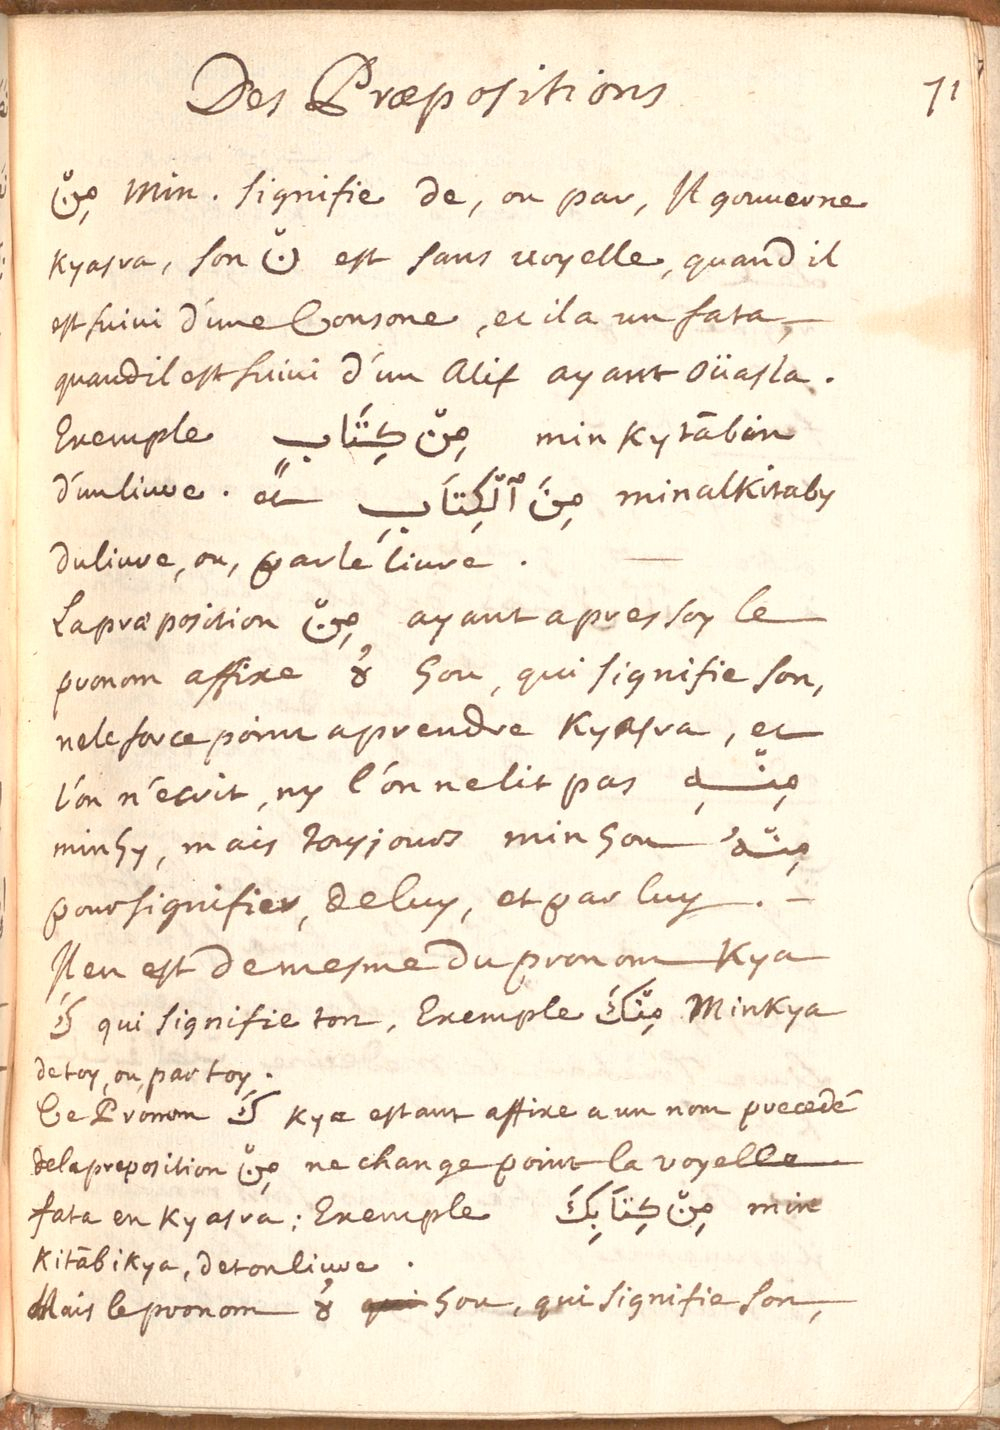 Des Præpositions 71
مِنْ Min . signifie de, ou par, Il gouuerne
kyasra, son نْ est sans uoyelle, quand il
est suiui d'une Consone, et il a un fata,
quand il est suiui d'un Alif ayant oüasla.
Exemple مِنْ كِتَابٍ min kytābin
d'un liure. et مِنَ ٱلْكِتَابِ minalkitaby
du liure, ou, par le liure.
La præposition مِنْ ayant apres soy le
pronom affixe هُ hou, qui signifie son,
ne le force point a prendre kyasra, et
l'on n'ecrit, ny l'on ne lit pas مِنْهِ
minhy, mais toujours minhou مِنْهُ
pour signifier, de luy, et par luy.
Il en est de mesme du pronom kya
كَ qui signifie ton, Exemple مِنْكَ Minkya
de toy, ou, par toy.
Ce Pronom كَ kya estant affixe a un nom precedé
de la preposition مِنْ ne change point la voyelle
fata en kyasra; Exemple مِنْ كِتَابِكَ min
kitābikya, de ton liure.
Mais le pronom هُ qui hou, qui signifie son,